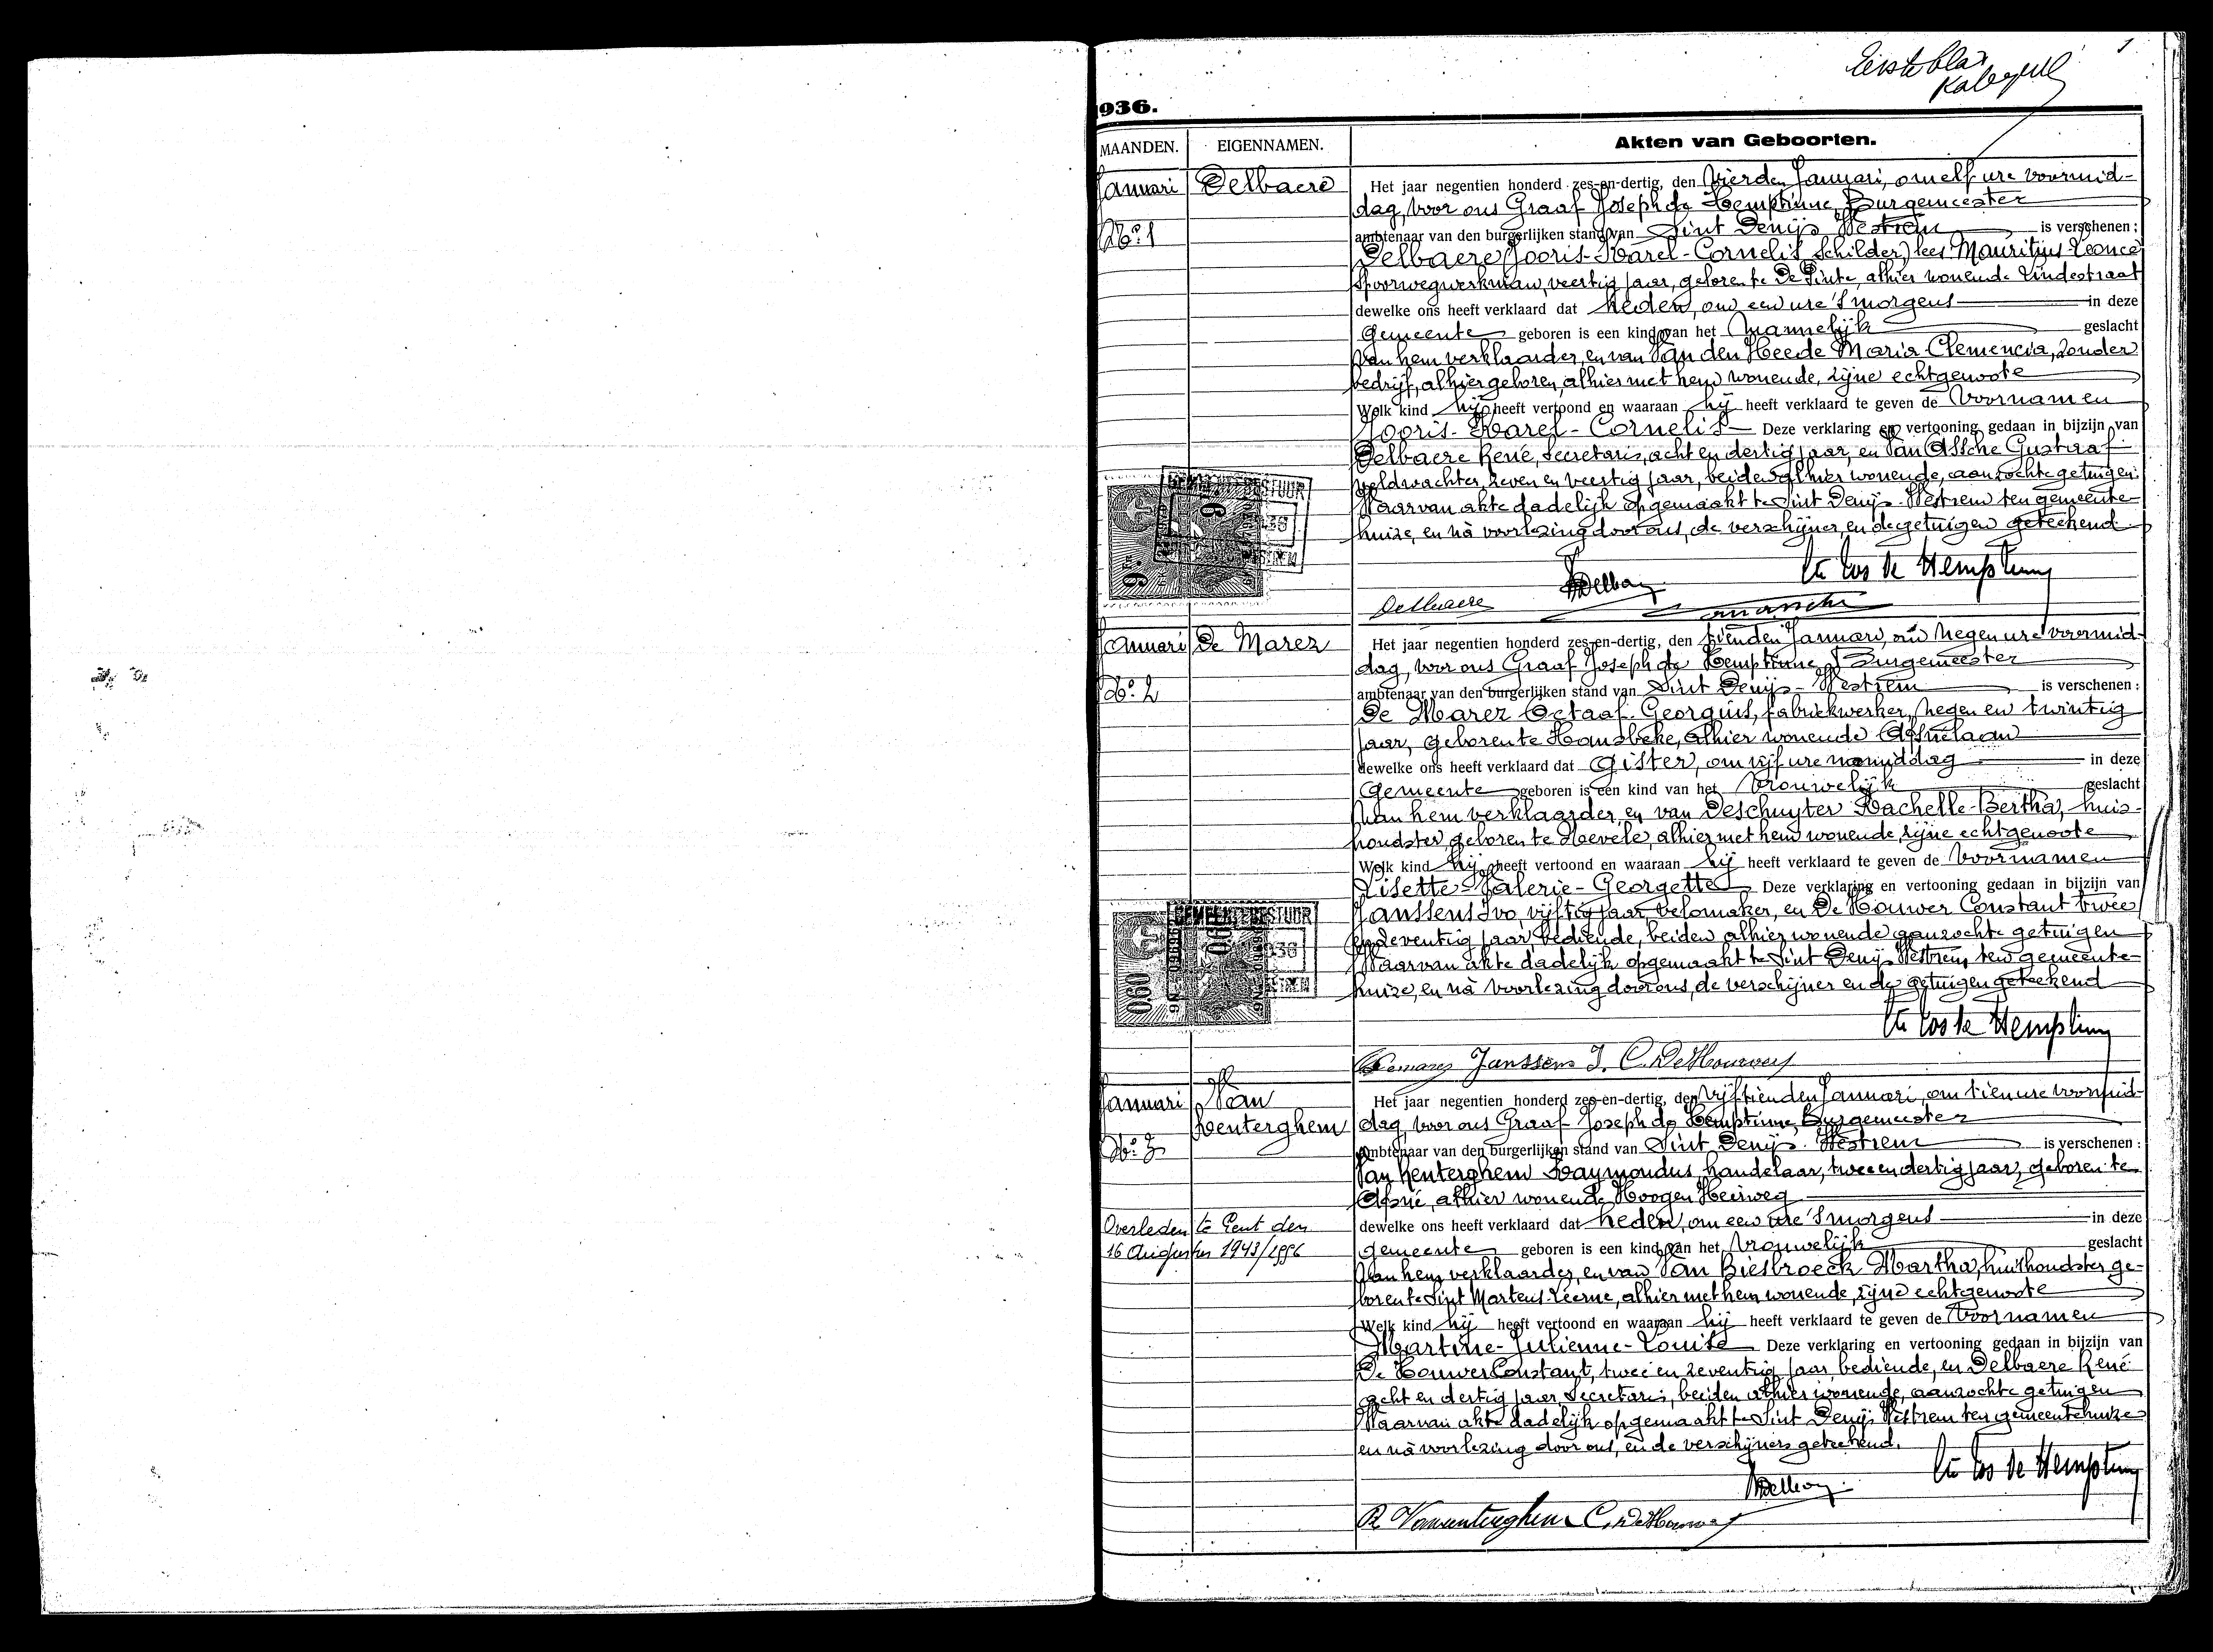 1
Eerste blad
1936.
MAANDEN. EIGENNAMEN. Akten van Geboorten.
Januari Delbaere Het jaar negentien honderd zes-en-dertig, den Vierden Januari, om elf ure voormid-
dag, voor ons Graaf Joseph de Hemptinne, Burgemeester
No 1 ambtenaar van den burgerlijken stand van Sint Denijs Westrem is verschenen :
Delbaere (Jooris-Karel-Cornelis Schilder) lees Mauritius Leonce
Spoorwegwerkman, veertig jaar, geboren te De Pinte, alhier wonende Lindestraat
dewelke ons heeft verklaard dat heden, om een ure 's morgens in deze
Gemeente geboren is een kind van het Mannelijk geslacht
Van hem verklaarder, en van Van den Heede Maria Clemencia, zonder
bedrijf, alhier geboren, alhier met hem wonende, zijne echtgenoote
Welk kind hij heeft vertoond en waaraan hij heeft verklaard te geven de Voornamen
Jooris-Karel-Cornelis Deze verklaring en vertooning gedaan in bijzijn van
Delbaere René, Secretaris, acht en dertig jaar, en Van Assche Gustaaf
veldwachter, zeven en veertig jaar, beiden alhier wonende, aanzochte getuigen.
Waarvan akte dadelijk opgemaakt te Sint Denijs-Westrem ten gemeente-
huize, en na voorlezing door ons, de verschijner, en de getuigen geteekend
Cte Jos de Hemptinne
Delbaere
Januari De Marez Het jaar negentien honderd zes-en-dertig, den tienden Januari, om negen ure voormid-
dag, voor ons Graaf Joseph de Hemptinne, Burgemeester
No 2 ambtenaar van den burgerlijken stand van Sint Denijs-Westrem is verschenen :
De Marez Octaaf-Georgius, fabriekwerker, negen en twintig
jaar, geboren te Hansbeke, alhier wonende Afsnelaan
dewelke ons heeft verklaard dat Gister, om vijf ure namiddag in deze
Gemeente geboren is een kind van het Vrouwelijk geslacht
Van hem verklaarder, en van Deschuyter Rachelle-Bertha, huis-
houdster, geboren te Nevele, alhier met hem wonende, zijne echtgenoote
Welk kind hij heeft vertoond en waaraan hij heeft verklaard te geven de Voornamen
Lisette-Valerie-Georgette Deze verklaring en vertooning gedaan in bijzijn van
Janssens Ivo, vijftig jaar, velomaker, en De Houwer Constant twee
en zeventig jaar, bediende, beiden alhier wonende aanzochte getuigen
GEMEENTEBESTUUR
Waarvan akte dadelijk opgemaakt te Sint Denijs Westrem, ten gemeente-
0.60
huize, en na voorlezing door ons, de verschijner en de getuigen geteekend
Cte Jos de Hemptinne
Demarez Janssens I. C. De Houwer
Januari Van Het jaar negentien honderd zes-en-dertig, den Vijftienden Januari, om tien ure voormid-
Renterghem dag, voor ons Graaf Joseph de Hemptinne, Burgemeester
No 3 ambtenaar van den burgerlijken stand van Sint Denijs-Westrem is verschenen :
Van Renterghem Raymondus, handelaar, twee en dertig jaar, geboren te
Afsné, alhier wonende, Hoogen Heirweg
Overleden te Gent den dewelke ons heeft verklaard dat heden, om een ure 's morgens in deze
16 Augustus 1943/1996 Gemeente geboren is een kind van het Vrouwelijk geslacht
Van hem verklaarder, en van Van Biesbroeck Martha, huishoudster ge-
boren te Sint Martens Leerne, alhier met hem wonende, zijne echtgenoote
Welk kind hij heeft vertoond en waaraan hij heeft verklaard te geven de Voornamen
Martine-Julienne-Louise Deze verklaring en vertooning gedaan in bijzijn van
De Houwer Constant, twee en zeventig jaar, bediende, en Delbaere René
acht en dertig jaar, Secretaris, beiden alhier wonende, aanzochte getuigen
Waarvan akte dadelijk opgemaakt te Sint Denijs Westrem ten gemeentehuize
en na voorlezing door ons, en de verschijners geteekend.
Cte Jos de Hemptinne
R Vanrenterghem C. De Houwer